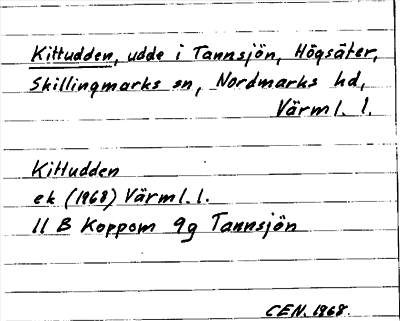 Kittudden, udde i Tannsjön, Högsäter,
Skillingmarks sn, Nordmarks hd,
Värml. l.
Kittudden
ek (1968) Värml. l.
11 B Koppom 9g Tannsjön
CEN. 1968.